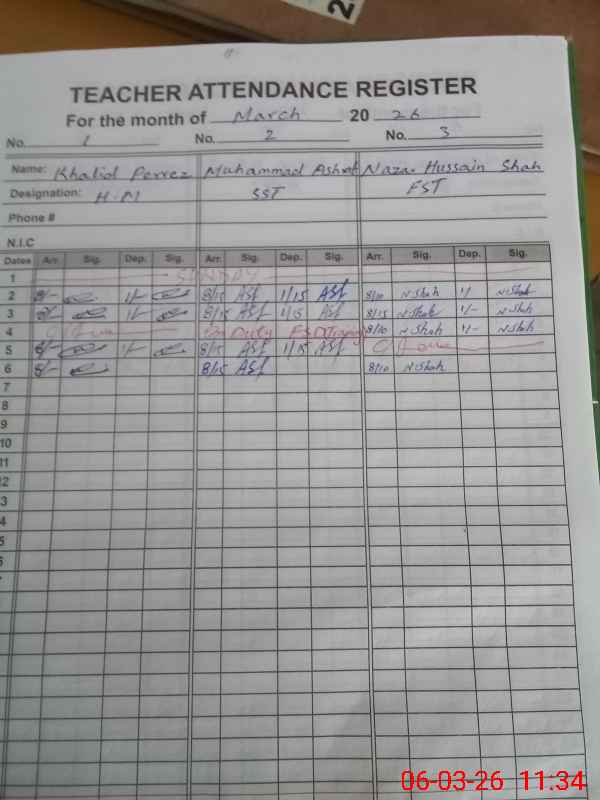 2
TEACHER ATTENDANCE REGISTER
For the month of March 20 26
No. 1 No. 2 No. 3
Name: Khalid Pervez Muhammad Ashraf Nazar Hussain Shah
Designation: H.M SST FST
Phone #
N.I.C
Dates Arr. Sig. Dep. Sig. Arr. Sig. Dep. Sig. Arr. Sig. Dep. Sig.
1 SUNDAY
2 8/- 1/- 8/15 Asf 1/15 Asf 8/10 N.Shah 1/- N.Shah
3 8/- 1/- 8/15 Asf 1/15 Asf 8/15 N.Shah 1/- N.Shah
4 C/Leave On Duty 8/10 N.Shah 1/- N.Shah
5 8/- 1/- 8/15 Asf 1/15 Asf C/Leave
6 8/- 8/15 Asf 8/10 N.Shah
7
8
9
10
11
2
3
4
5
06-03-26 11:34